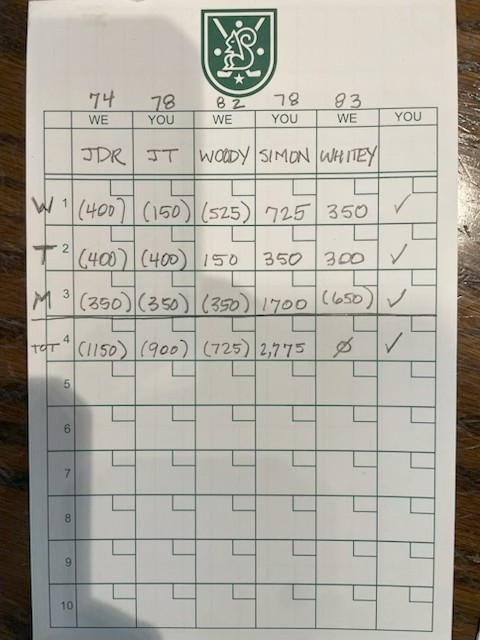 74 78 82 78 83
WE YOU WE YOU WE YOU
JDR JT WOODY SIMON WHITEY
W 1 (400) (150) (525) 725 350 ✓
T 2 (400) (400) 150 350 300 ✓
M 3 (350) (350) (350) 1700 (650) ✓
TOT 4 (1150) (900) (725) 2,775 ∅ ✓
5
6
7
8
9
10